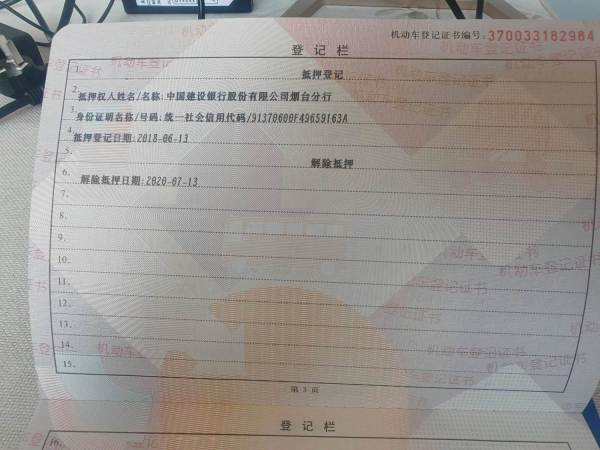 机动车登记证书编号:370033182984
登记栏
1. 抵押登记
2. 抵押权人姓名/名称:中国建设银行股份有限公司烟台分行
3. 身份证明名称/号码:统一社会信用代码/91370600F49659163A
4. 抵押登记日期:2018-06-13
5. 解除抵押
6. 解除抵押日期:2020-07-13
7.
8.
9.
10.
11.
12.
13.
14.
15.
第 3 页
登记栏
16.